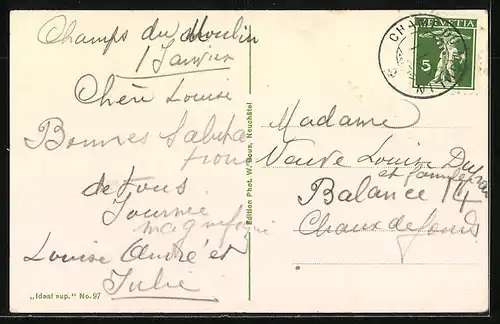 Champs du Moulin
1 Janvier
Chère Louise
Bonnes Saluta
tions
de tous
Journée
magnifique
Louise André et
Julie
"Ideal sup." No. 97
Edition Phot. W. Neuchâtel
HELVETIA
5
CHAMP DU MOULIN
Madame
Veuve Louise
et famille
Balance 14
Chaux de fonds